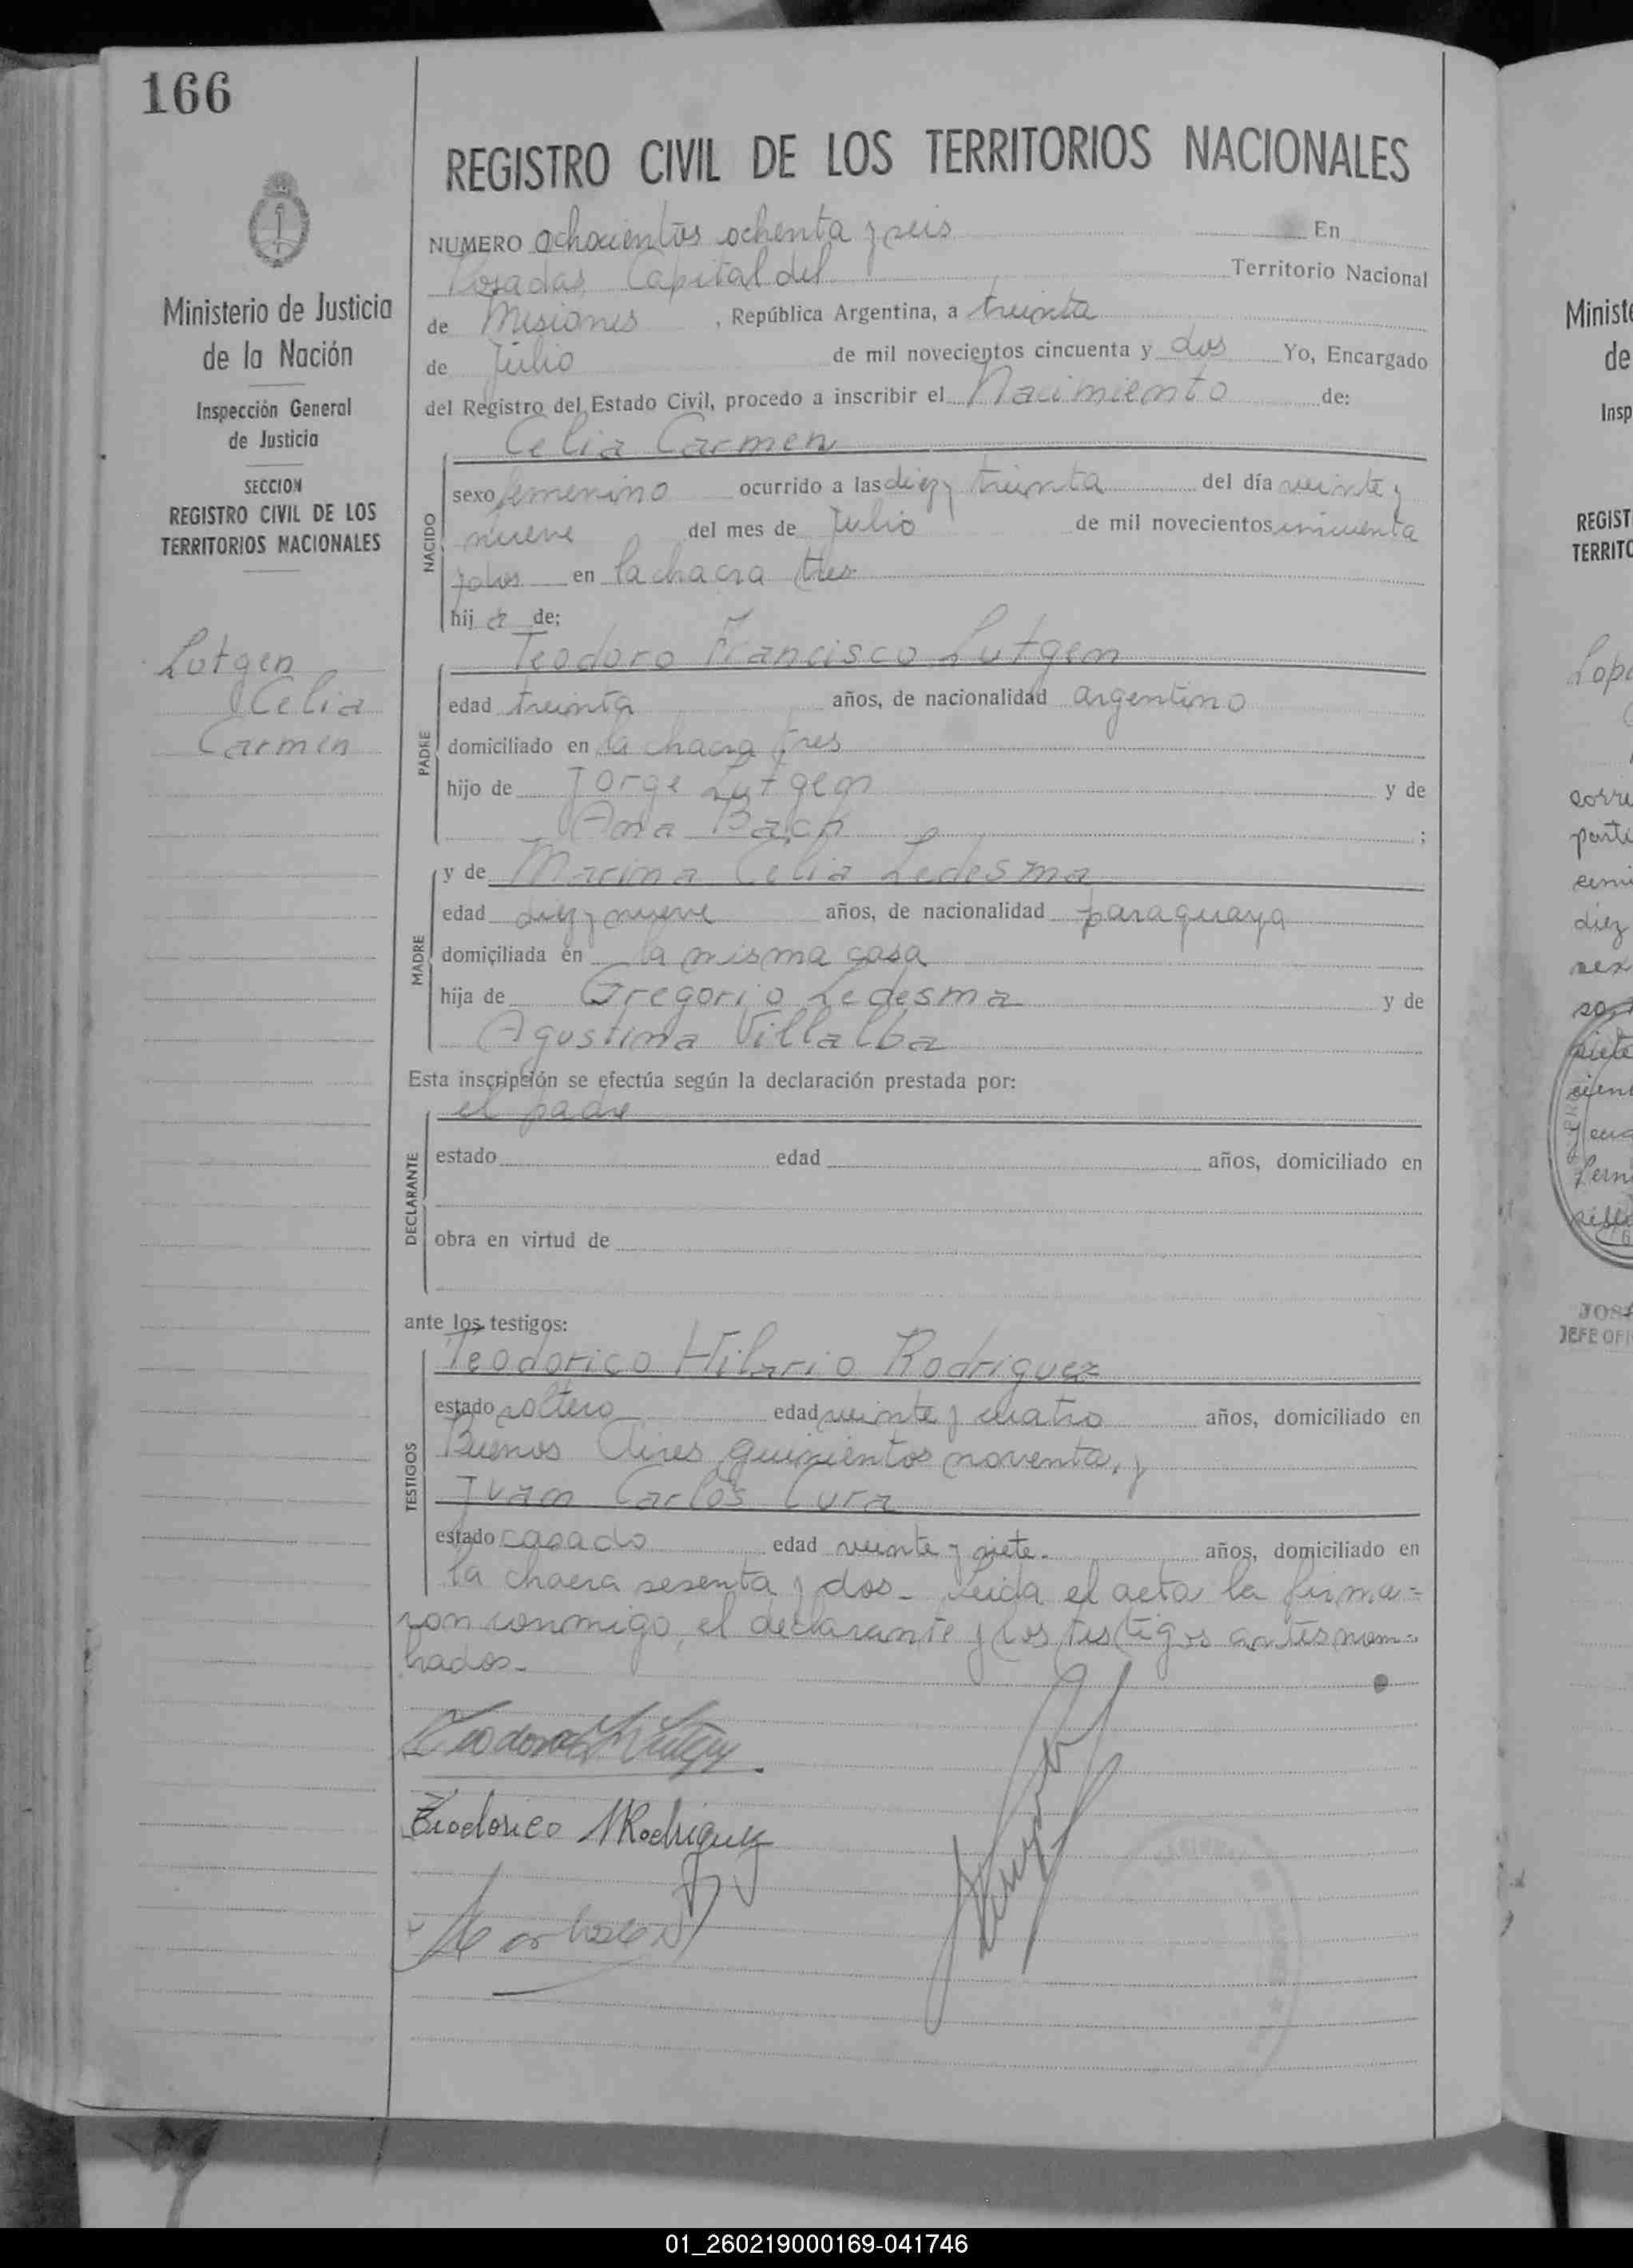 166
REGISTRO CIVIL DE LOS TERRITORIOS NACIONALES
NUMERO ochocientos ochenta y seis En
Posadas Capital del Territorio Nacional
de Misiones , República Argentina, a treinta
de Julio de mil novecientos cincuenta y dos Yo, Encargado
del Registro del Estado Civil, procedo a inscribir el Nacimiento de:
Celia Carmen
NACIDO
sexo femenino ocurrido a las diez y treinta del día veinte y
nueve del mes de Julio de mil novecientos cincuenta
y dos en la chacra tres
hij a de:
Teodoro Francisco Lutgen
PADRE
edad treinta años, de nacionalidad argentino
domiciliado en la chacra tres
hijo de Jorge Lutgen y de
Ana Bach ;
MADRE
y de Marina Celia Ledesma
edad diez y nueve años, de nacionalidad paraguaya
domiciliada en la misma casa
hija de Gregorio Ledesma y de
Agustina Villalba
Esta inscripción se efectúa según la declaración prestada por:
el padre
DECLARANTE
estado edad años, domiciliado en
obra en virtud de
ante los testigos:
Teodorico Hilario Rodriguez
TESTIGOS
estado soltero edad veinte y cuatro años, domiciliado en
Buenos Aires quinientos noventa, y
Juan Carlos Cura
estado casado edad veinte y siete. años, domiciliado en
la chacra sesenta y dos- Leida el acta la firma=
ron conmigo, el declarante y los testigos antes nom=
brados-
Teodorico H Rodriguez
Ministerio de Justicia
de la Nación
Inspección General
de Justicia
SECCION
REGISTRO CIVIL DE LOS
TERRITORIOS NACIONALES
Lutgen
Celia
Carmen
Ministe
de
Insp
REGIST
TERRITO
diez
JEFE OFI
01_260219000169-041746